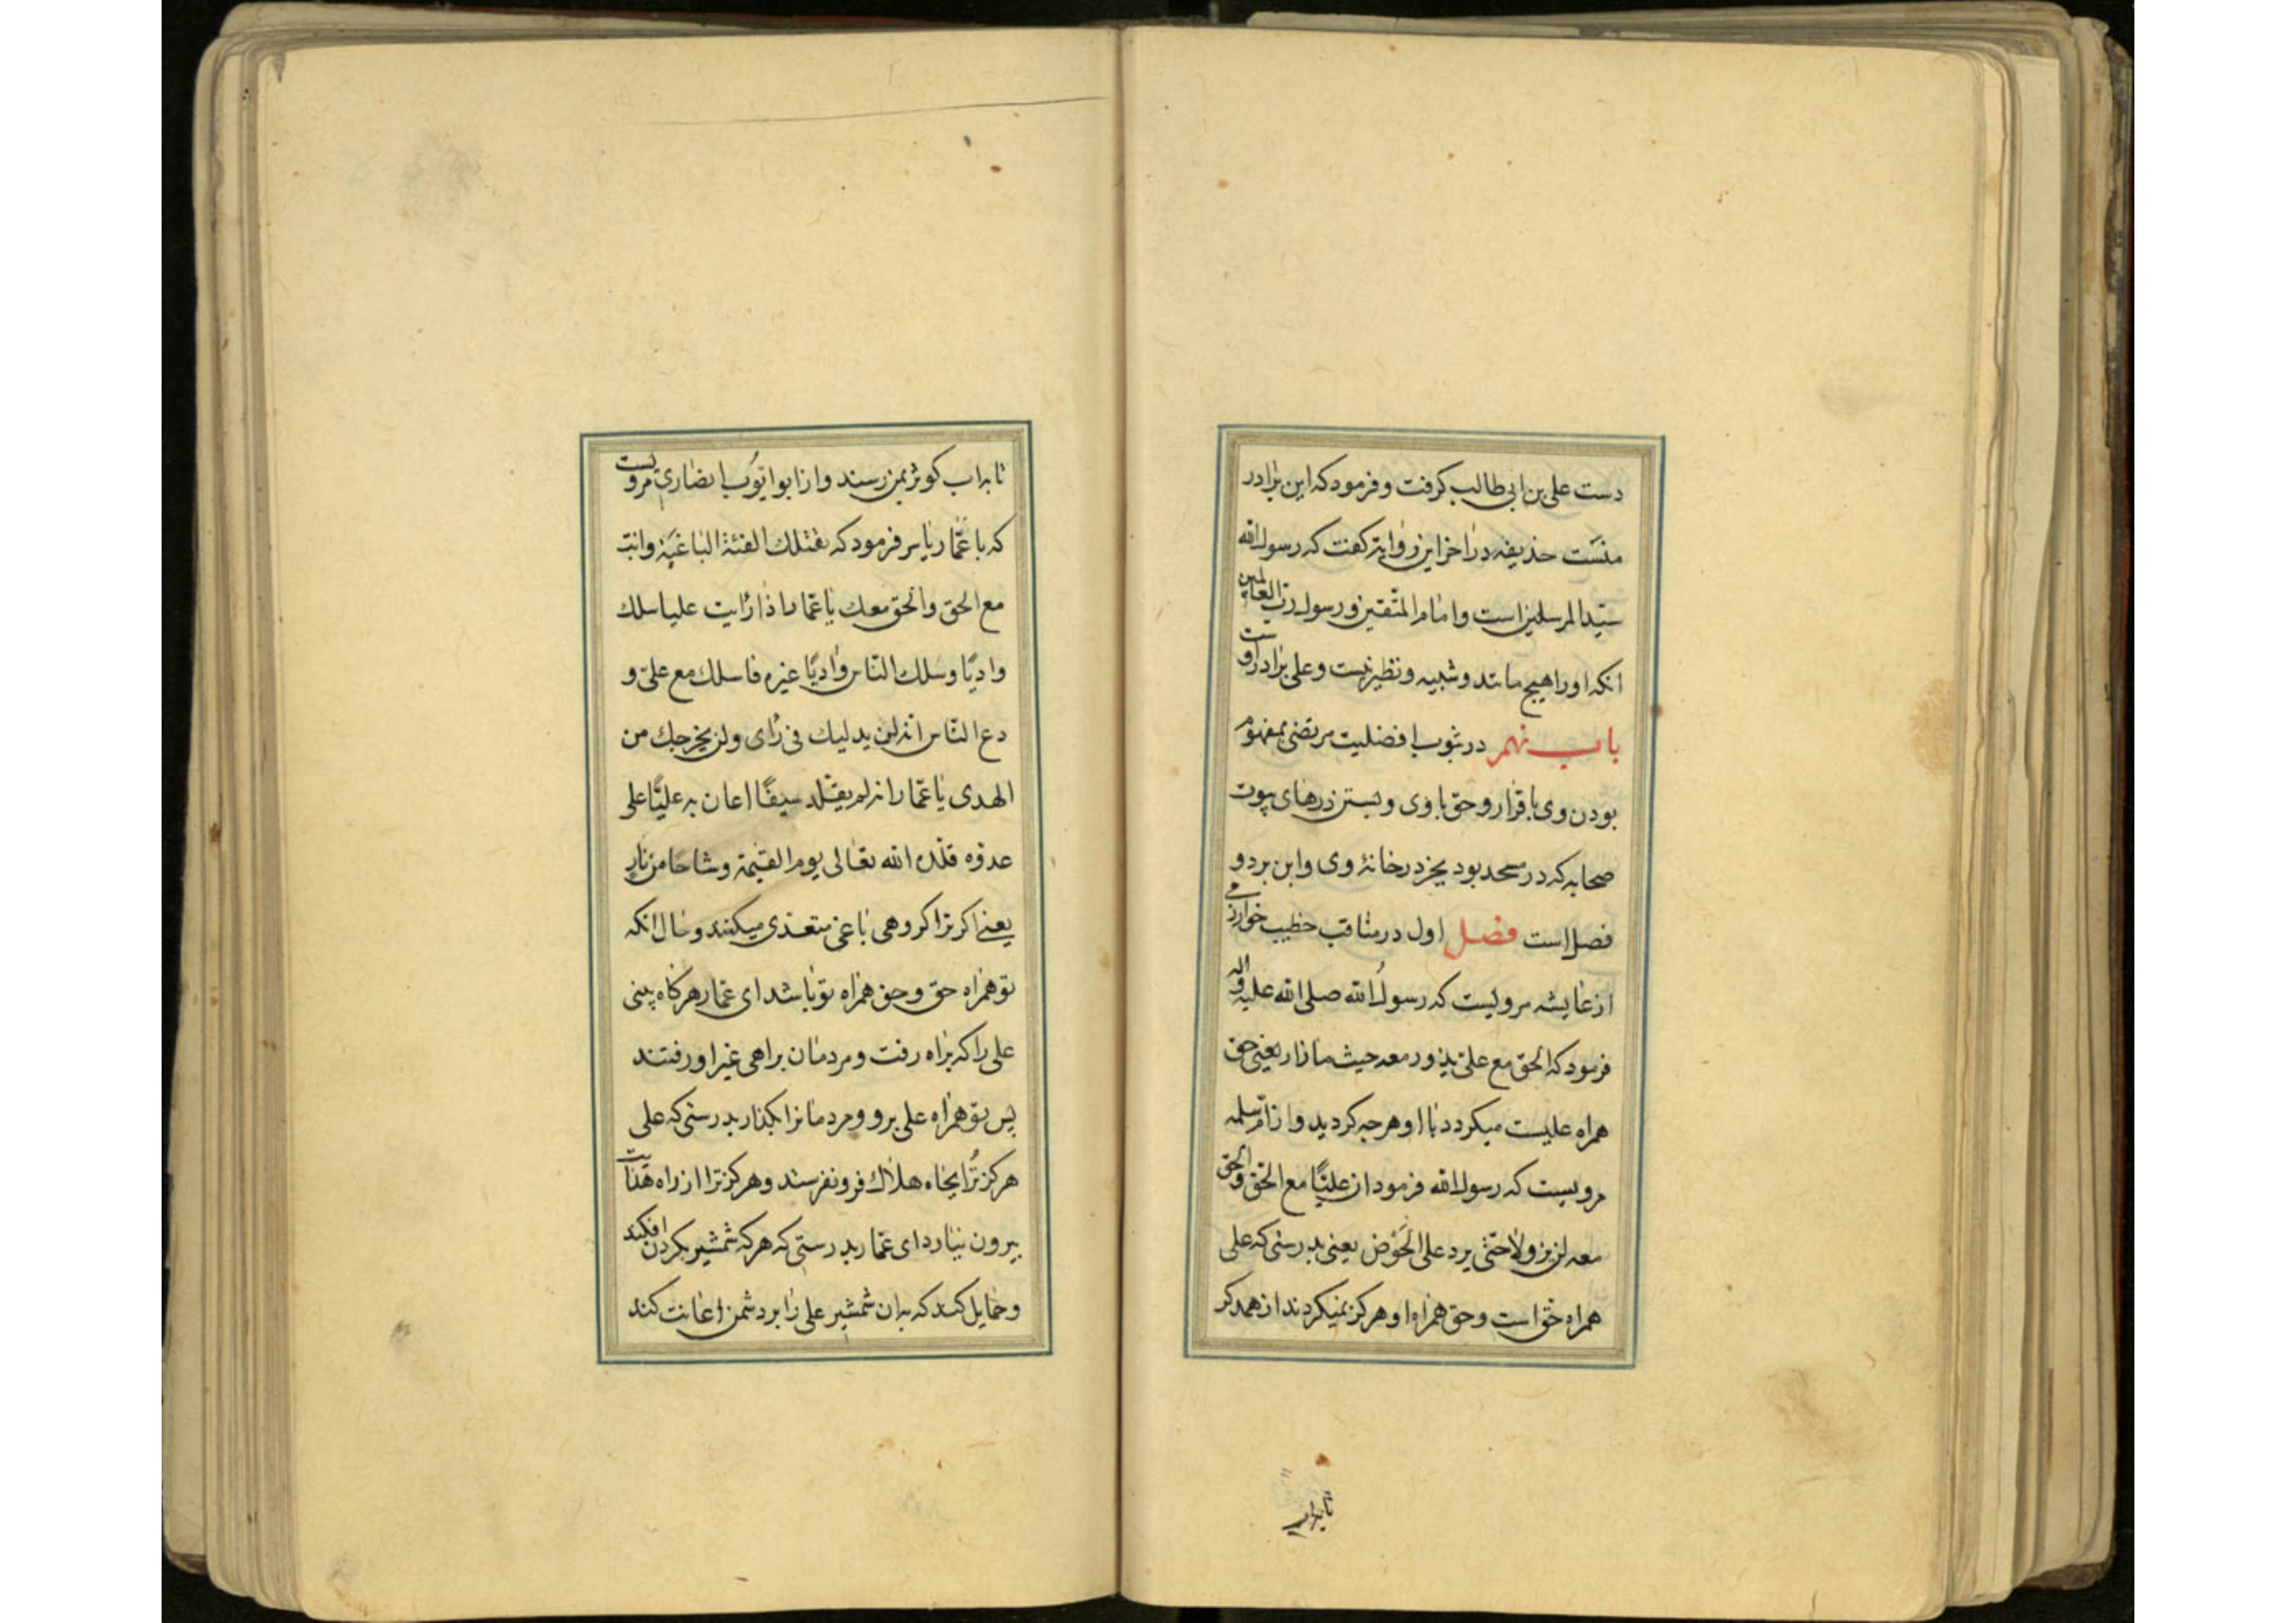 دست علی بن ابی طالب کرفت و فرمود که این برادر
منست حذیفه در اخر این روایة کفت که رسول الله
سید المرسلین است و امام المتقین و رسول رب العالمین
انکه او را هیچ مانند و شبیه و نظیر نیست و علی برادر اوست
باب نهم در ثبوب افضلیت مرتضی بمفهوم
بودن وی با قرار و حق با وی و بستن درهای بیوت
صحابه که در مسجد بود بجز در خانۀ وی و این بر دو
فصل است فصل اول در مناقب خطیب خوارزمی
از عایشه مرولیست که رسول الله صلی الله علیه و اله
فرمود که الحق مع علی یذور معه حیث ما زار یعنی حق
همراه علیست میکردد با او هر جه کردید و از ام سلمه
مرویست که رسول الله فرمود ان علیًا مع الحق و الحق
معه لن یزولا حتی یرد علی الحَوْض یعنی بدرستی که علی
همراه حق است و حق همراه او هرکز نمیکردند از همدکر
تا بداب
تا بداب کوثر بمن رسند و از ابو ایوب انصاری مرویست
که با عمار یاسر فرمود که تقتلك الفئة الباغیة و انت
مع الحق و الحق معك یا عمار اذا رایت علیا سلك
وادیًا و سلك الناس وادیًا غیره فاسلك مع علی و
دع الناس انه لن یدلیك فی رای و لن یخرجك من
الهدی یا عمار انه لم یقتلد سیفًا اعان به علیًا علی
عدوه قلده الله تعالی یوم القیمة وشاحا من نارٍ
یعنی اکر ترا کروهی باغی متعدی میکنند و حال انکه
تو همراه حق و حق همراه تو باشد ای عمار هر کاه بینی
علی را که براه رفت و مردمان براهی غیر او رفتند
پس تو همراه علی برو و مردمانرا بکذار بدرستی که علی
هرکز ترا بچاه هلاك فرو نفرستد و هرکز ترا از راه هدایت
بیرون نیارد ای عمار بدرستی که هر که شمشیر بکردن افکند
و حمایل کند که به ان شمشیر علی را بر دشمن اعانت کند